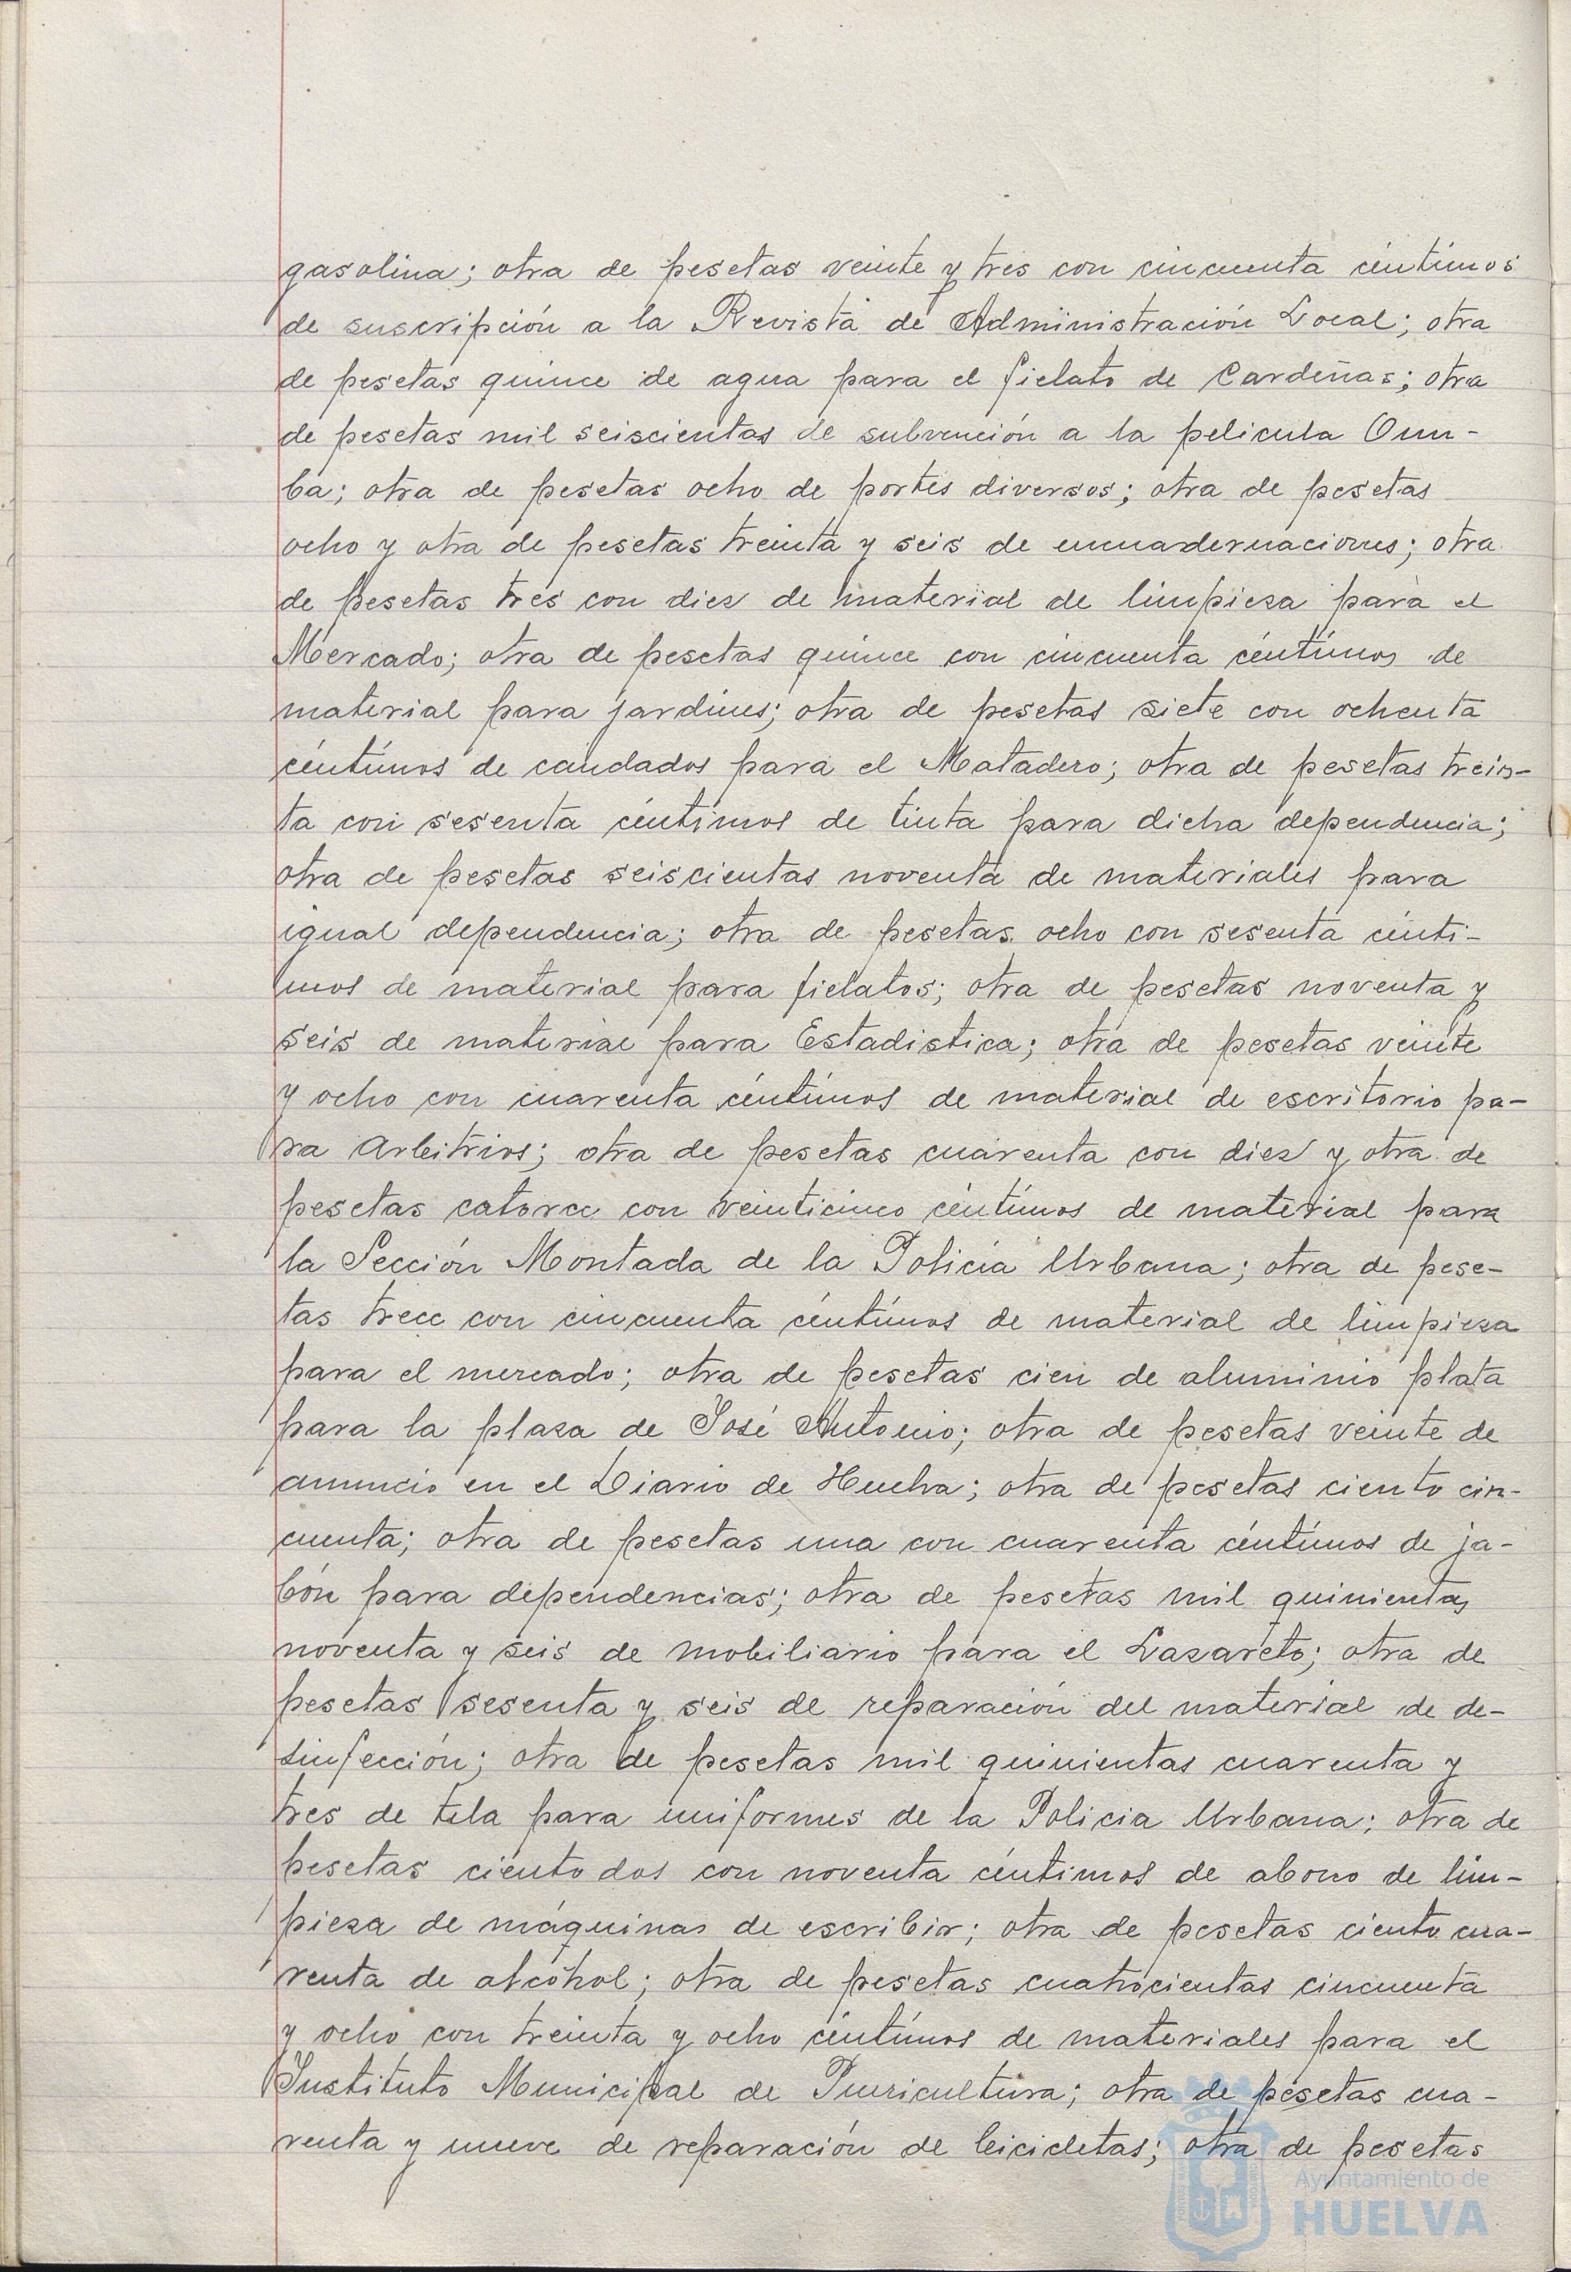 gasolina; otra de pesetas veinte y tres con cincuenta céntimos
de suscripción a la Revista de Administración Local; otra
de pesetas quince de agua para el fielato de Cardeñas; otra
de pesetas mil seiscientas de subvención a la pelicula Onu-
ba; otra de pesetas ocho de portes diversos; otra de pesetas
ocho y otra de pesetas treinta y seis de encuadernaciones; otra
de pesetas tres con diez de material de limpieza para el
Mercado; otra de pesetas quince con cincuenta céntimos de
material para jardines; otra de pesetas siete con ochenta
céntimos de candados para el Matadero; otra de pesetas trein-
ta con sesenta céntimos de tinta para dicha dependencia;
otra de pesetas seiscientas noventa de materiales para
igual dependencia; otra de pesetas ocho con sesenta cénti-
mos de material para fielatos; otra de pesetas noventa y
seis de material para Estadistica; otra de pesetas veinte
y ocho con cuarenta céntimos de material de escritorio pa-
ra Arbitrios; otra de pesetas cuarenta con diez y otra de
pesetas catorce con veinticinco céntimos de material para
la Sección Montada de la Policía Urbana; otra de pese-
tas trece con cincuenta céntimos de material de limpieza
para el mercado; otra de pesetas cien de aluminio plata
para la plaza de José Antonio; otra de pesetas veinte de
anuncio en el Diario de Huelva; otra de pesetas ciento cin-
cuenta; otra de pesetas una con cuarenta céntimos de ja-
bón para dependencias; otra de pesetas mil quinientas
noventa y seis de mobiliario para el Lazareto; otra de
pesetas sesenta y seis de reparación del material de de-
sinfección; otra de pesetas mil quinientas cuarenta y
tres de tela para uniformes de la Policia Urbana; otra de
pesetas ciento dos con noventa céntimos de abono de lim-
pieza de máquinas de escribir; otra de pesetas ciento cua-
renta de alcohol; otra de pesetas cuatrocientas cincuenta
y ocho con treinta y ocho céntimos de materiales para el
Instituto Municipal de Puericultura; otra de pesetas cua-
renta y nueve de reparación de bicicletas; otra de pesetas
Ayuntamiento de
HUELVA